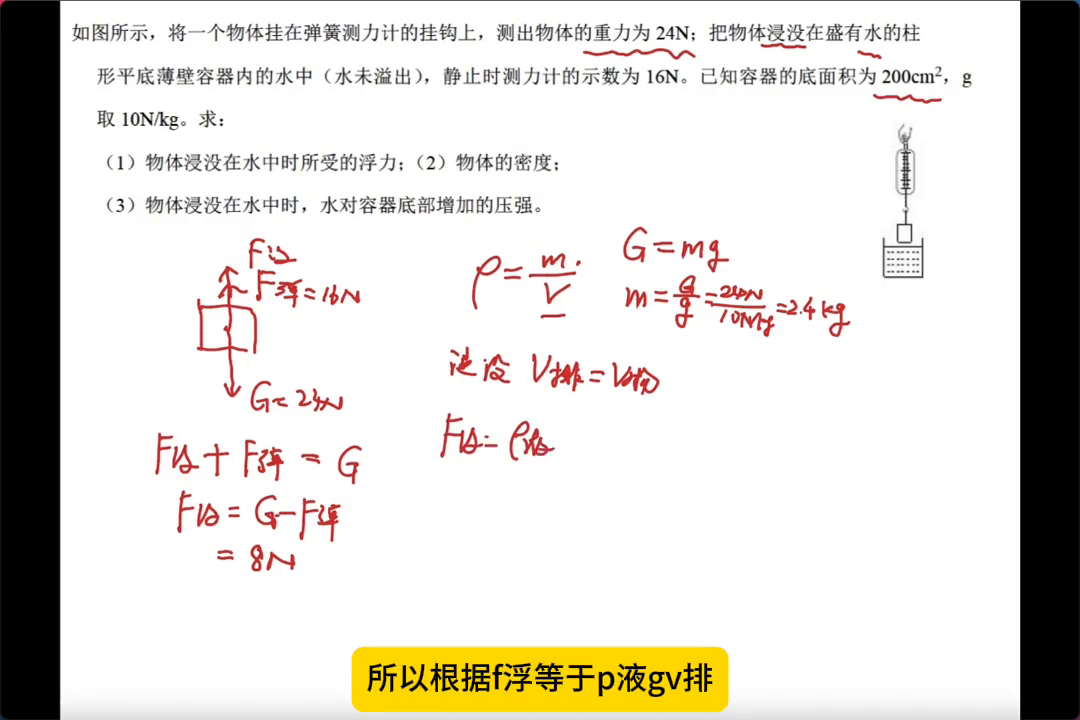 如图所示，将一个物体挂在弹簧测力计的挂钩上，测出物体的重力为 24N；把物体浸没在盛有水的柱
形平底薄壁容器内的水中（水未溢出），静止时测力计的示数为 16N。已知容器的底面积为 200cm²，g
取 10N/kg。求：
（1）物体浸没在水中时所受的浮力；（2）物体的密度；
（3）物体浸没在水中时，水对容器底部增加的压强。
F浮
F弹=16N
G=24N
F浮+F弹=G
F浮=G-F弹
=8N
ρ=m/V
G=mg
m=G/g=24N/10N/kg=2.4kg
浸没 V排=V物
F浮=ρ液
所以根据f浮等于p液gv排